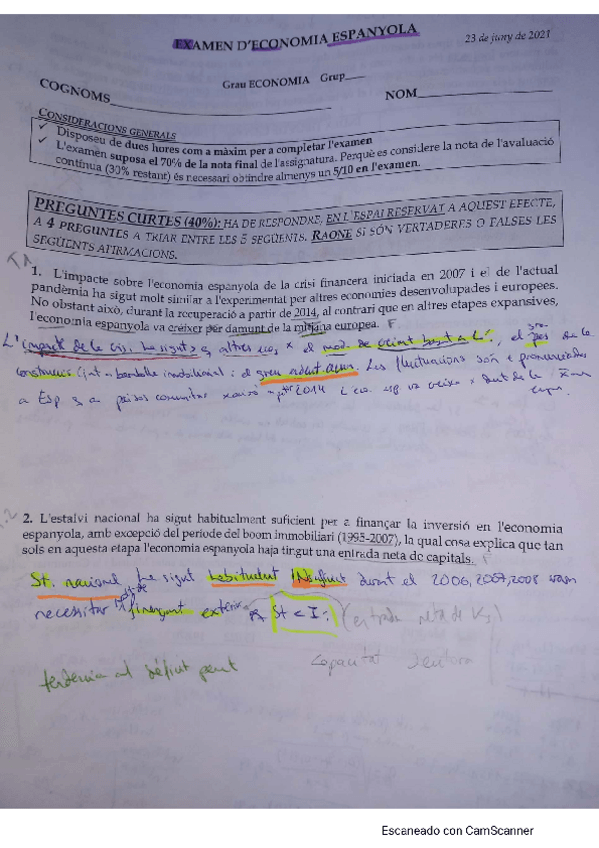 EXAMEN D'ECONOMIA ESPANYOLA
23 de juny de 2021
Grau ECONOMIA Grup___
COGNOMS
NOM
CONSIDERACIONS GENERALS
✓ Disposeu de dues hores com a màxim per a completar l'examen
✓ L'examen suposa el 70% de la nota final de l'assignatura. Perquè es considere la nota de l'avaluació
contínua (30% restant) és necessari obtindre almenys un 5/10 en l'examen.
PREGUNTES CURTES (40%): HA DE RESPONDRE, EN L'ESPAI RESERVAT A AQUEST EFECTE,
A 4 PREGUNTES A TRIAR ENTRE LES 5 SEGÜENTS. RAONE SI SÓN VERTADERES O FALSES LES
SEGÜENTS AFIRMACIONS.
1. L'impacte sobre l'economia espanyola de la crisi financera iniciada en 2007 i el de l'actual
pandèmia ha sigut molt similar a l'experimentat per altres economies desenvolupades i europees.
No obstant això, durant la recuperació a partir de 2014, al contrari que en altres etapes expansives,
l'economia espanyola va créixer per damunt de la mitjana europea. F.
L'impacte de la crisi ha sigut > altres eco, x el mod. de creixt basat en L', el pes de la
construcció bombolla immobiliària i el greu Les fluctuacions són + pronunciades
a Esp a països 2014 L'eco. esp va créixer x dunt de la
2. L'estalvi nacional ha sigut habitualment suficient per a finançar la inversió en l'economia
espanyola, amb excepció del període del boom immobiliari (1995-2007), la qual cosa explica que tan
sols en aquesta etapa l'economia espanyola haja tingut una entrada neta de capitals.
St. nacional ha sigut habitualment INsuficient durant el 2006, 2007, 2008 vam
necessitar finançament exterior St < I. (entrada neta de Ks)
tendència al dèficit Capacitat
Escaneado con CamScanner